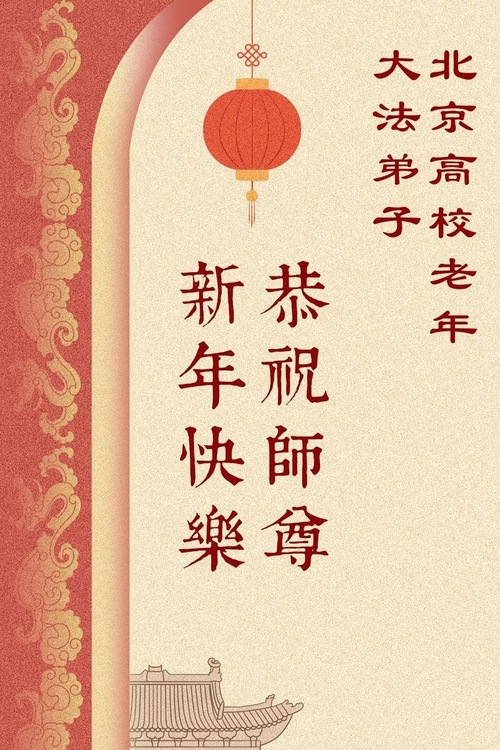 北京高校老年
大法弟子
恭祝師尊
新年快樂